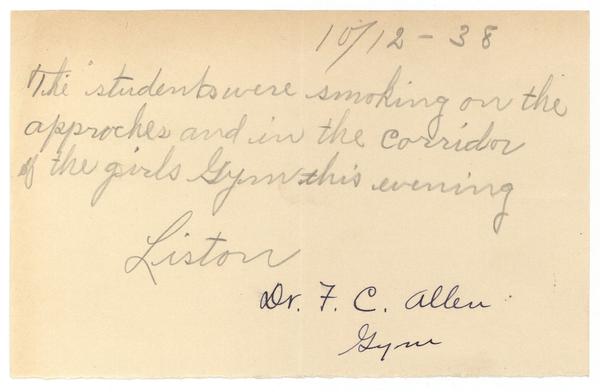 10/12-38
The students were smoking on the
approches and in the corridor
of the girls Gym this evening
Liston
Dr. F. C. Allen
Gym